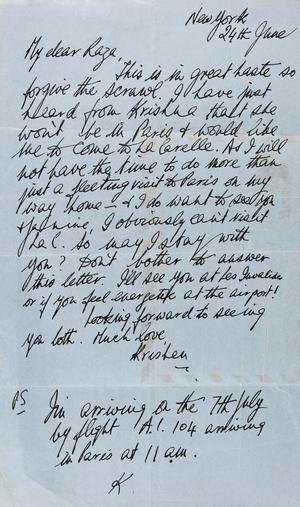 New York
24th June
My dear Raza,
This is in great haste so
forgive the scrawl. I have just
heard from Krishna that she
wont be in Paris & would like
me to come to La Carelle. As I will
not have the time to do more than
just a fleeting visit to Paris on my
way home — & I do want to see you
& Janine, I obviously can't visit
La C. So may I stay with
you? Don't bother to answer
this letter. I'll see you at Les Invalides
or if you feel energetic at the airport!
Looking forward to seeing
you both. Much love,
Krishen
PS
I'm arriving on the 7th July
by flight A.I. 104 arriving
in Paris at 11 am.
K.